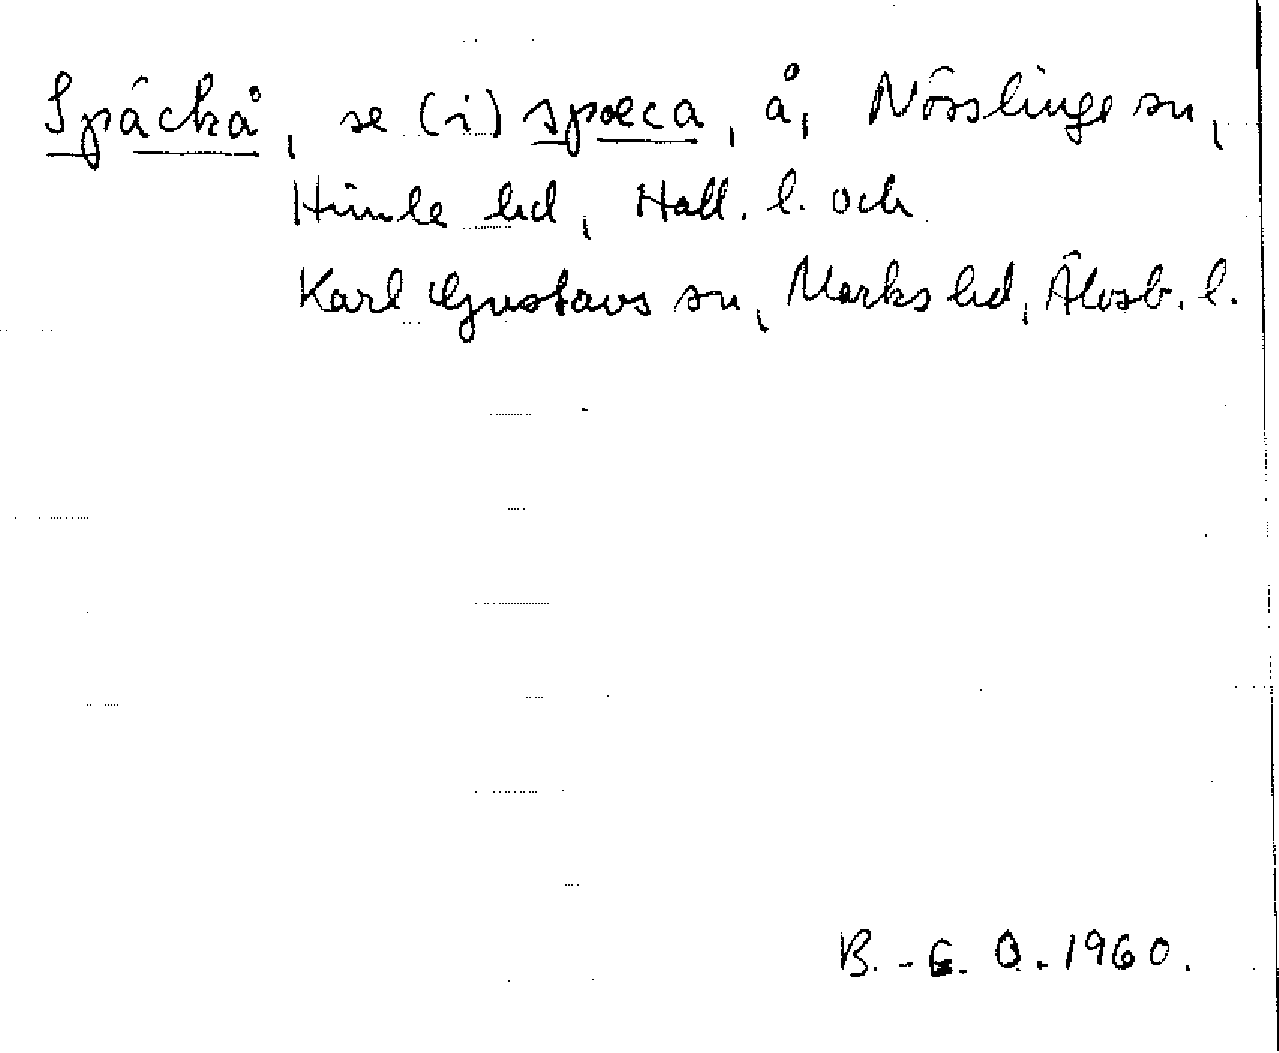 Späckå, se (i) spæca, å, Nösslinge sn,
Himle hd, Hall. l. och
Karl Gustavs sn, Marks hd, Älvsb. l.
B.-E. O. 1960.